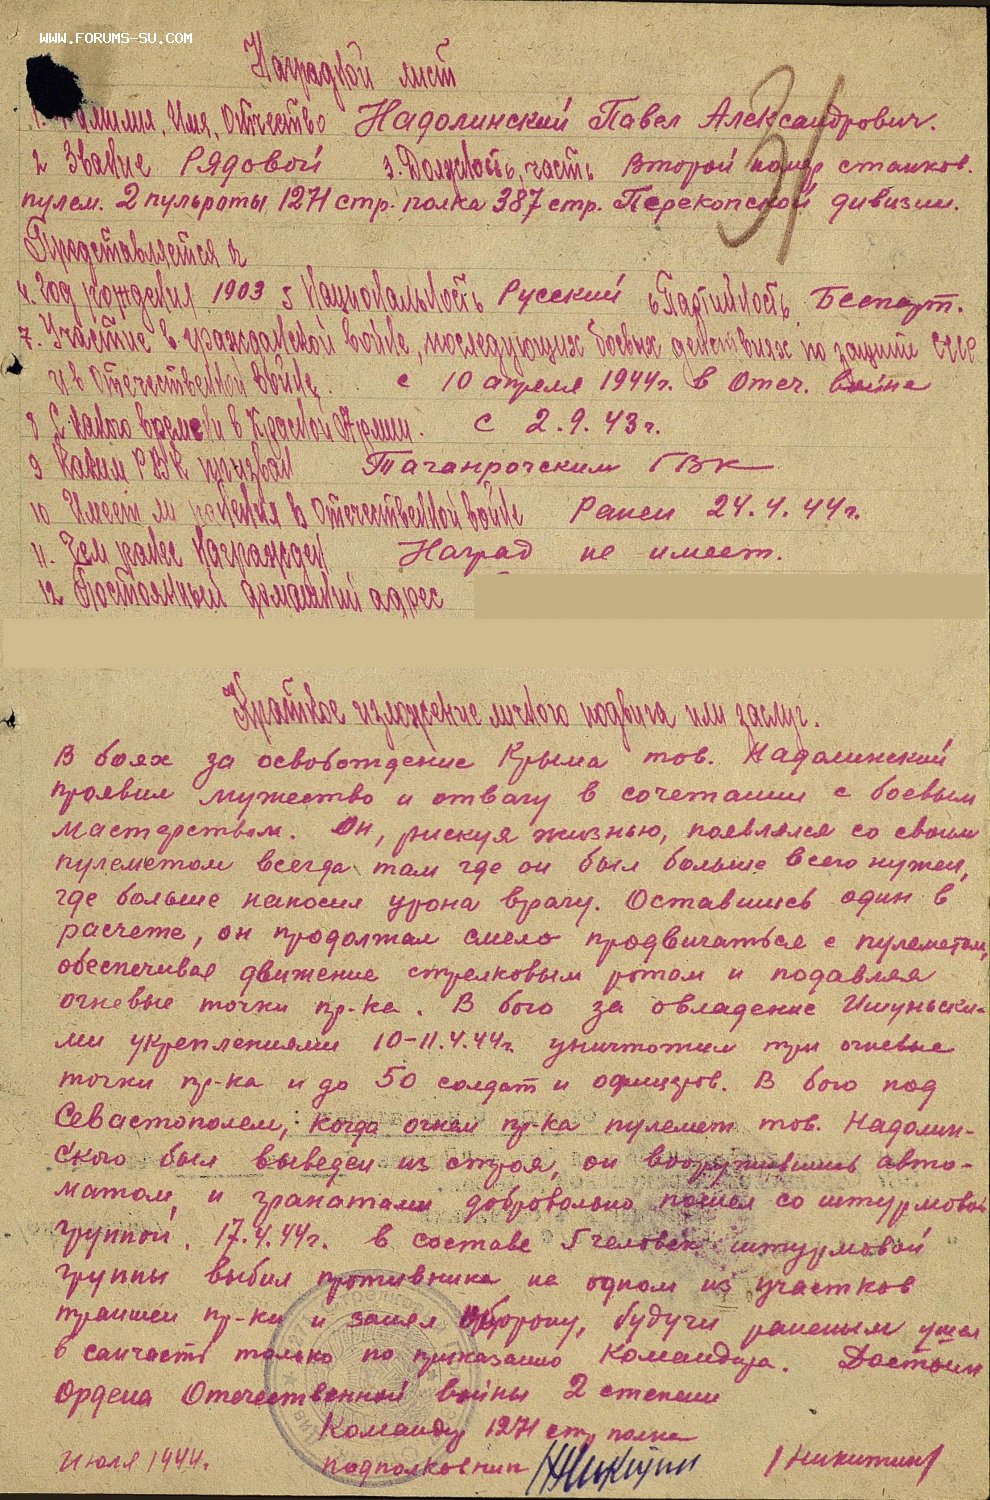 WWW.FORUMS-SU.COM
Наградной лист
31
1. Фамилия, Имя, Отчество Надолинский Павел Александрович.
2 Звание Рядовой 3. Должность, часть Второй номер станков.
пулем. 2 пульроты 1271 стр. полка 387 стр. Перекопской дивизии.
Представляется к
4. Год рождения 1903 5 Национальность Русский 6 Партийность Беспарт.
7. Участие в гражданской войне, последующих боевых действиях по защите СССР
и в отечественной войне. с 10 апреля 1944г. в Отеч. войне
8 С какого времени в Красной Армии. с 2.9.43г.
9 Каким РВК призван Таганрогским ГВК
10 Имеет ли ранения в отечественной войне Ранен 24.4.44г.
11. Чем ранее награжден Наград не имеет.
12 Постоянный домашний адрес
Краткое изложение личного подвига или заслуг.
В боях за освобождение Крыма тов. Надолинский
проявил мужество и отвагу в сочетании с боевым
мастерством. Он, рискуя жизнью, появлялся со своим
пулеметом всегда там где он был больше всего нужен,
где больше наносил урона врагу. Оставшись один в
расчете, он продолжал смело продвигаться с пулеметом,
обеспечивая движение стрелковым ротам и подавляя
огневые точки пр-ка. В бою за овладение Ишуньски-
ми укреплениями 10-11.4.44г. уничтожил три огневые
точки пр-ка и до 50 солдат и офицеров. В бою под
Севастополем, когда огнем пр-ка пулемет тов. Надолин-
ского был выведен из строя, он вооружившись авто-
матом, и гранатами добровольно пошел со штурмовой
группой. 17.4.44г. в составе 5 человек штурмовой
группы выбил противника на одном из участков
траншеи пр-ка и занял оборону, будучи раненым ушел
в санчасть только по приказанию Командира. Достоин
Ордена Отечественной войны 2 степени
Командир 1271 стр полка
Июля 1944. подполковник Никитин /Никитин/